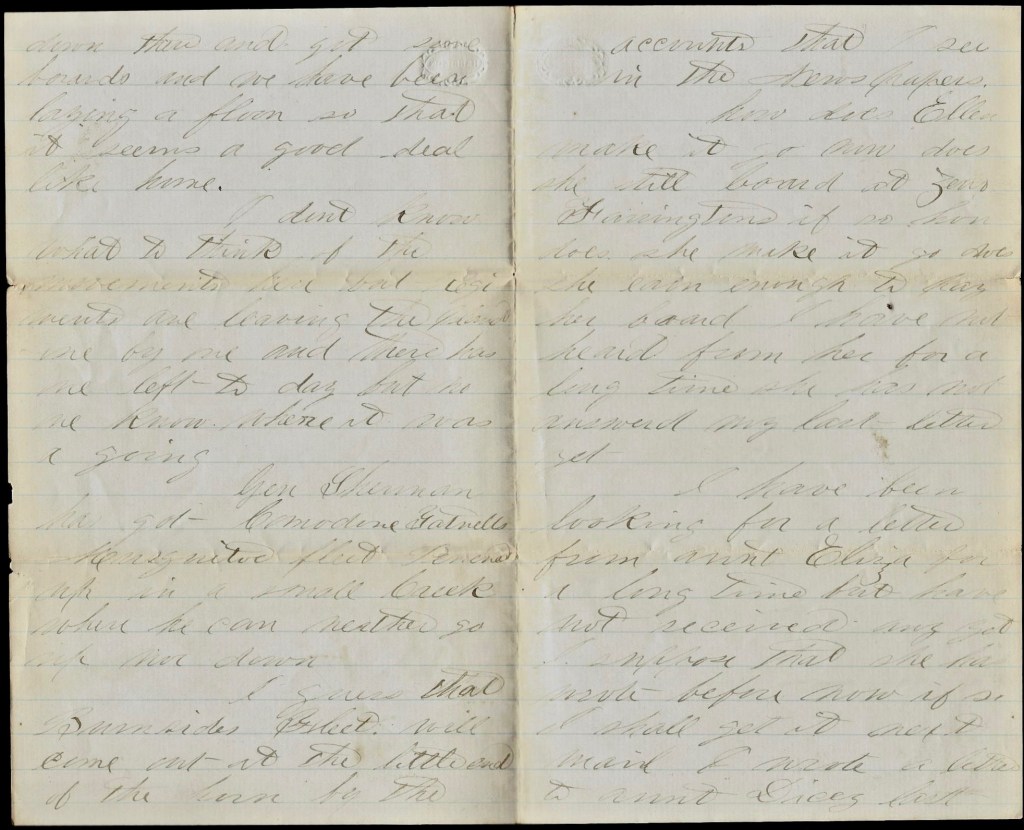 down thare and got some
boards and we have been
laying a floor so that
it seems a good deal
like home.
I dont know
what to think of the
movements here
ments are leaving the
one by one and there has
one left to day but no
one knows where it was
a going
Gen Sherman
has got Comodore Tatnells
Musquitoe fleet Penned
up in a small Creek
where he can neather go
up nor down
I guess that
Burnsides Fleet will
come out at the little end
of the horn by the
accounts that I see
in the News Papers.
how does Ellen
make it go now does
she still board at
Farringtons if so how
does she make it go does
she earn enough to pay
her board I have not
heard from her for a
long time she has not
answerd my last letter
yet
I have been
looking for a letter
from aunt Eliza for
a long time but have
not received any yet
I suppose that she has
wrote before now if so
I shall get it next
mail I wrote a letter
to aunt Dicey last